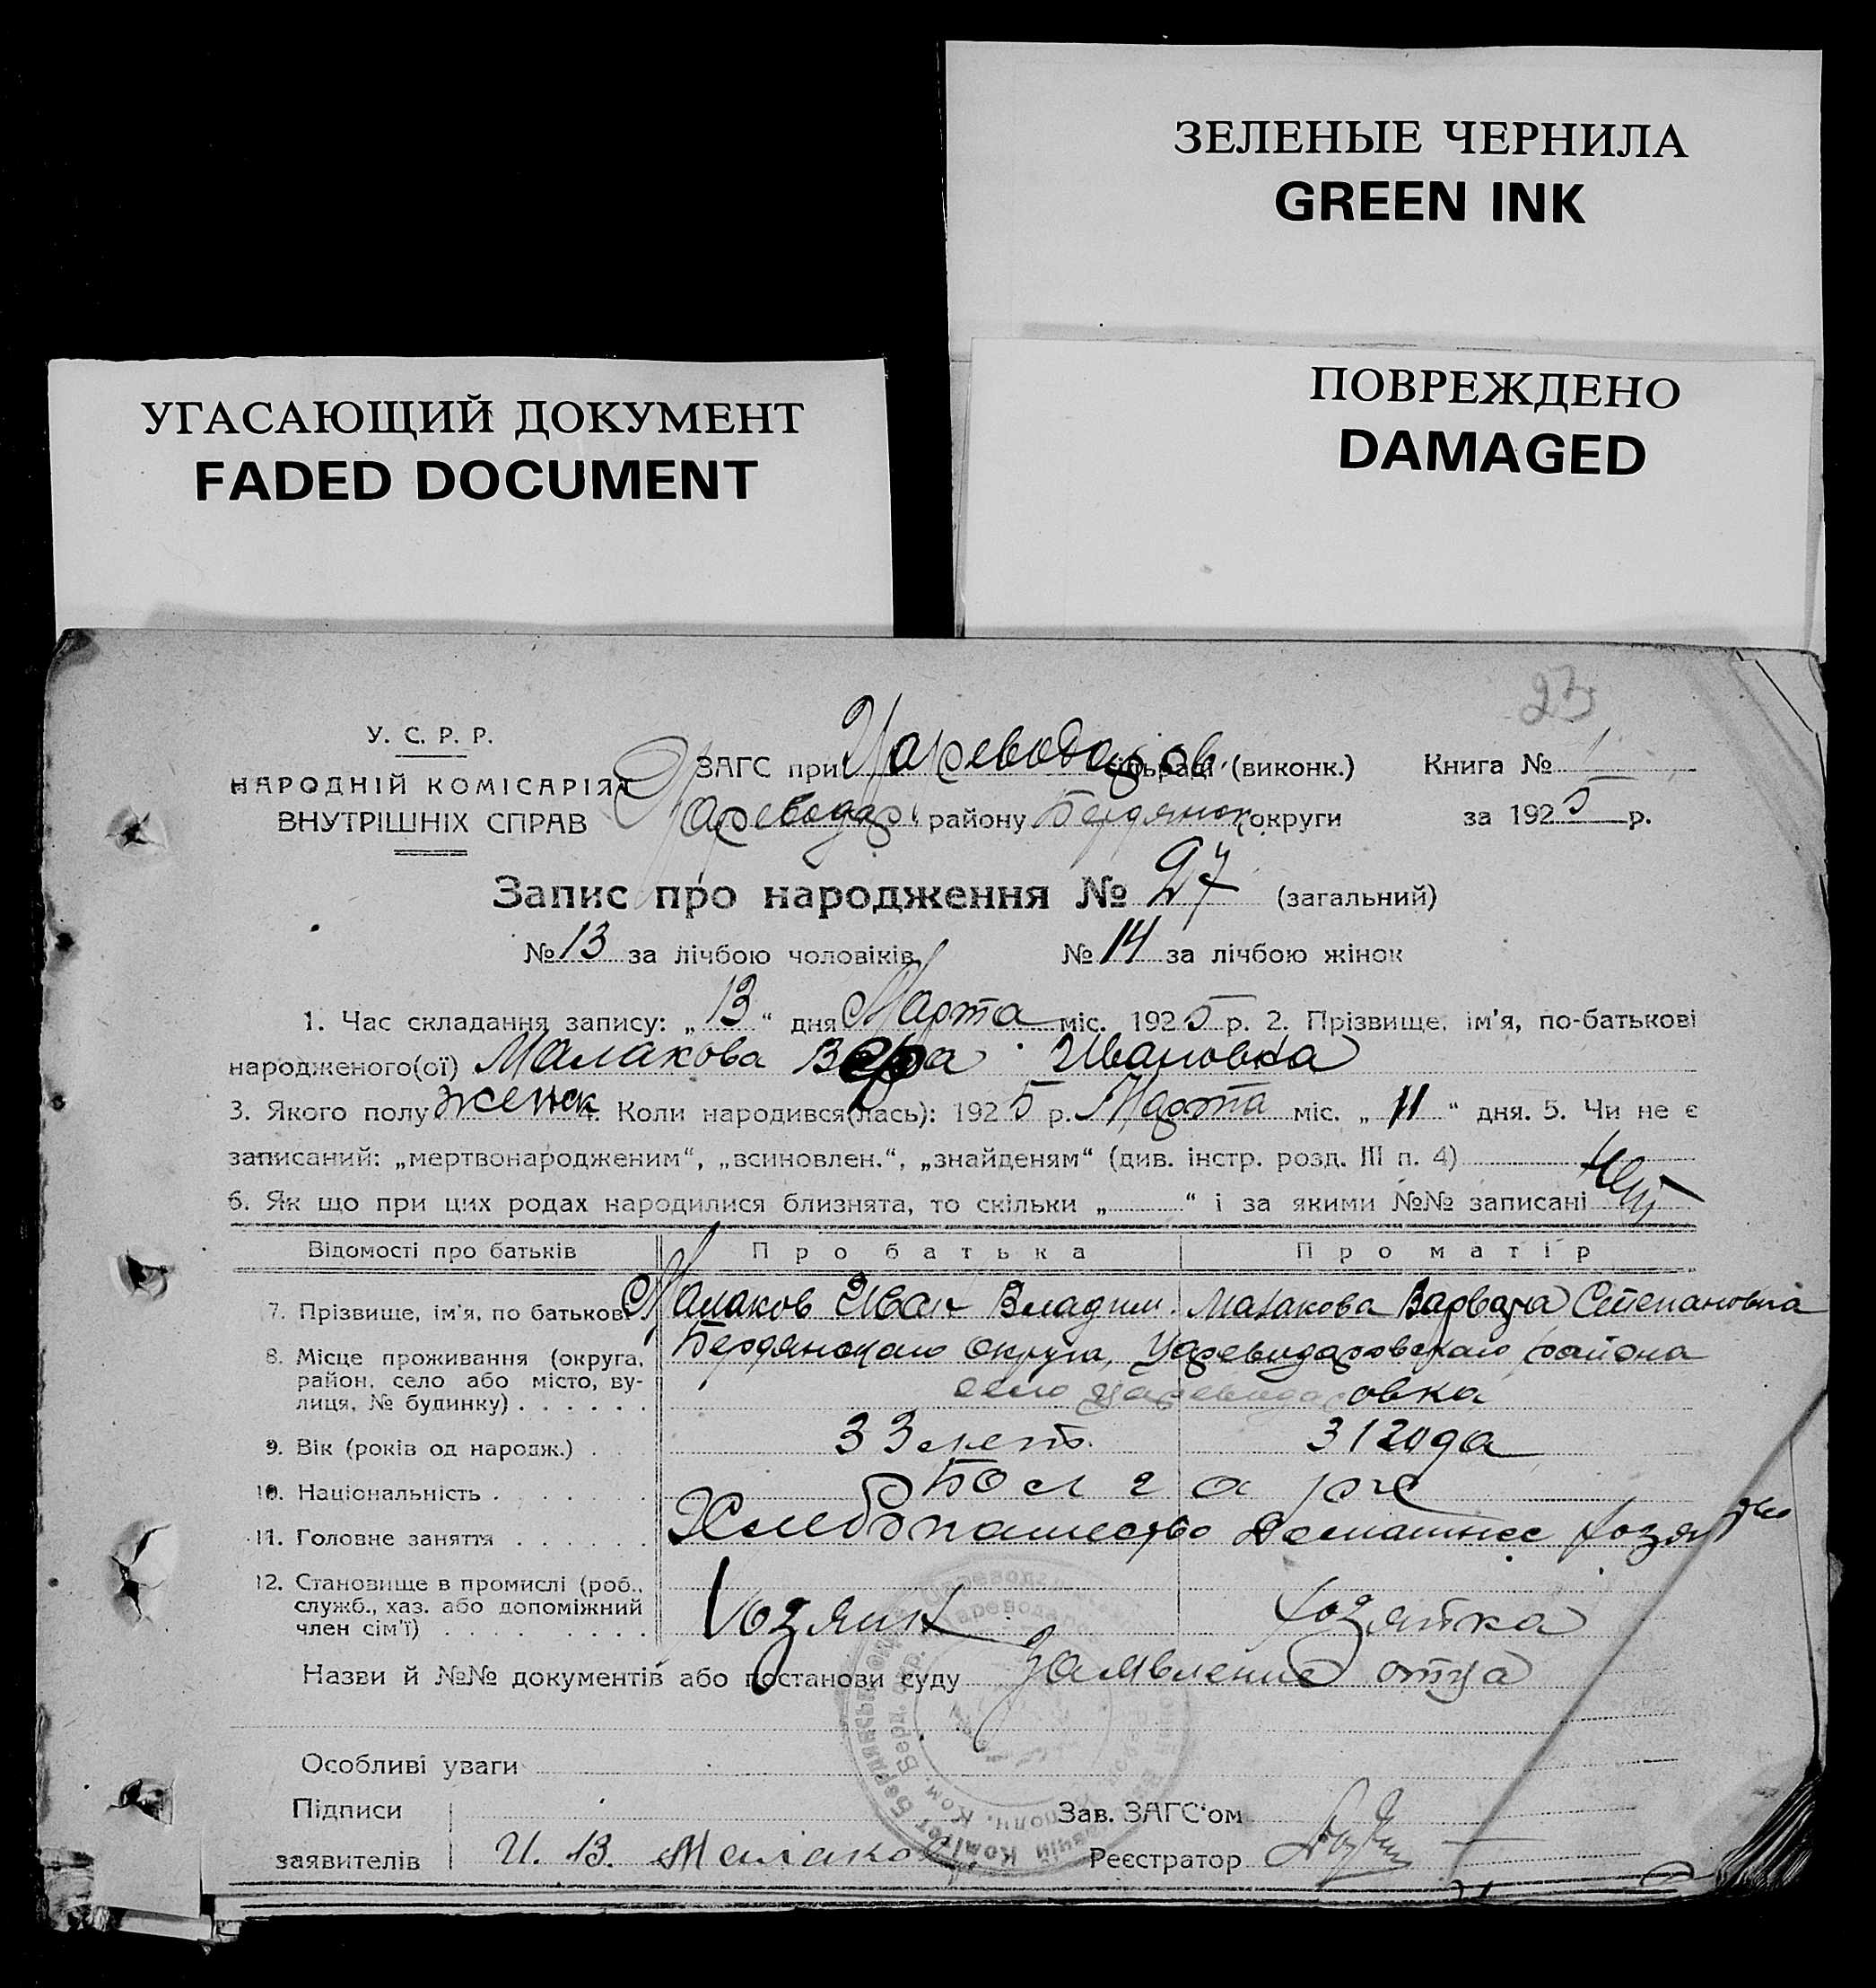 ЗЕЛЕНЫЕ ЧЕРНИЛА
GREEN INK
ПОВРЕЖДЕНО
DAMAGED
УГАСАЮЩИЙ ДОКУМЕНТ
FADED DOCUMENT
У. С. Р. Р.
НАРОДНІЙ КОМІСАРІЯТ
ВНУТРІШНІХ СПРАВ
ЗАГС при Цареводаров. сільраді (виконк.)
Цареводар. району Бердянск. округи
Книга № 1
за 1925 р.
Запис про народження № 27 (загальний)
№ 13 за лічбою чоловіків № 14 за лічбою жінок
1. Час складання запису: „13“ дня Марта міс. 1925 р. 2. Прізвище, ім'я, по-батькові
народженого(ої) Малакова Вера Ивановна
3. Якого полу женск. 4. Коли народився(лась): 1925 р. Марта міс. „11“ дня. 5. Чи не є
записаний: „мертвонародженим“, „всиновлен.“, „знайденям“ (див. інстр. розд. III п. 4)
6. Як що при цих родах народилися близнята, то скільки „ “ і за якими №№ записані Нет
Відомості про батьків Про батька Про матір
7. Прізвище, ім'я, по батькові Малаков Иван Владим. Малакова Варвара Степановна
8. Місце проживання (округа, район, село або місто, вулиця, № будинку) Бердянского округа, Цареводаровского района
село Цареводаровка
9. Вік (років од народж.) 33 лет. 31 года
10. Національність Болгаре
11. Головне заняття Хлебопашество Домашнее хозяйство
12. Становище в промислі (роб., служб., хаз. або допоміжний член сім'ї) Хозяин Хозяйка
Назви й №№ документів або постанови суду Заявление отца
Особливі уваги
Підписи
заявителів И. В. Малаков
Зав. ЗАГС'ом
Реєстратор